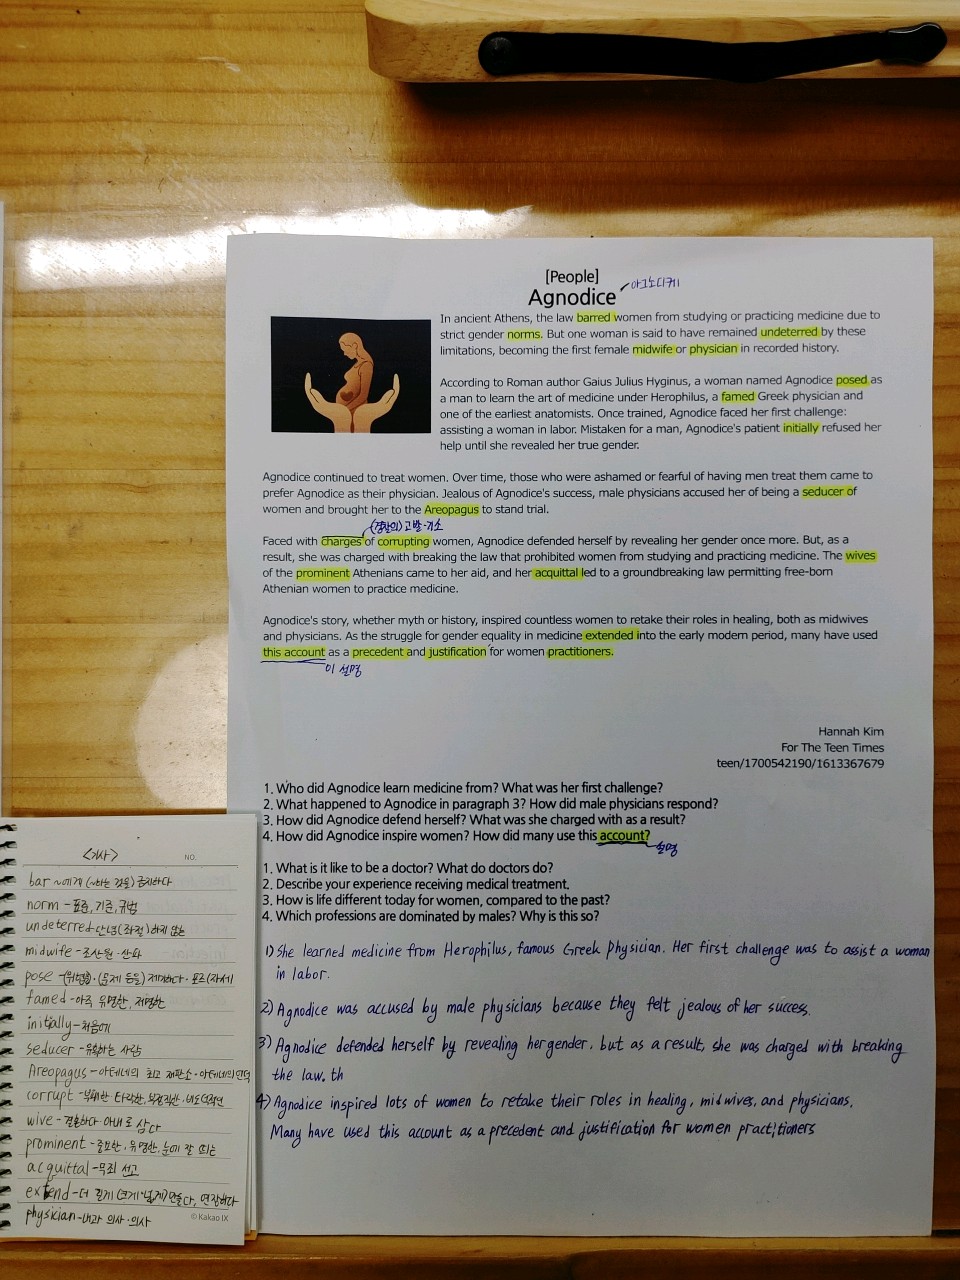 [People]
Agnodice
아그노디케
In ancient Athens, the law barred women from studying or practicing medicine due to
strict gender norms. But one woman is said to have remained undeterred by these
limitations, becoming the first female midwife or physician in recorded history.
According to Roman author Gaius Julius Hyginus, a woman named Agnodice posed as
a man to learn the art of medicine under Herophilus, a famed Greek physician and
one of the earliest anatomists. Once trained, Agnodice faced her first challenge:
assisting a woman in labor. Mistaken for a man, Agnodice's patient initially refused her
help until she revealed her true gender.
Agnodice continued to treat women. Over time, those who were ashamed or fearful of having men treat them came to
prefer Agnodice as their physician. Jealous of Agnodice's success, male physicians accused her of being a seducer of
women and brought her to the Areopagus to stand trial.
(경찰의) 고발·기소
Faced with charges of corrupting women, Agnodice defended herself by revealing her gender once more. But, as a
result, she was charged with breaking the law that prohibited women from studying and practicing medicine. The wives
of the prominent Athenians came to her aid, and her acquittal led to a groundbreaking law permitting free-born
Athenian women to practice medicine.
Agnodice's story, whether myth or history, inspired countless women to retake their roles in healing, both as midwives
and physicians. As the struggle for gender equality in medicine extended into the early modern period, many have used
this account as a precedent and justification for women practitioners.
이 설명
Hannah Kim
For The Teen Times
teen/1700542190/1613367679
1. Who did Agnodice learn medicine from? What was her first challenge?
2. What happened to Agnodice in paragraph 3? How did male physicians respond?
3. How did Agnodice defend herself? What was she charged with as a result?
4. How did Agnodice inspire women? How did many use this account?
설명
1. What is it like to be a doctor? What do doctors do?
2. Describe your experience receiving medical treatment.
3. How is life different today for women, compared to the past?
4. Which professions are dominated by males? Why is this so?
1) She learned medicine from Herophilus, famous Greek physician. Her first challenge was to assist a woman
in labor.
2) Agnodice was accused by male physicians because they felt jealous of her success.
3) Agnodice defended herself by revealing her gender, but as a result, she was charged with breaking
the law. th
4) Agnodice inspired lots of women to retake their roles in healing, midwives, and physicians.
Many have used this account as a precedent and justification for women practitioners
<기사>
NO.
bar ~에게 (~하는 것을) 금지하다
norm - 표준, 기준, 규범
undeterred 단념(좌절)하지 않는
midwife - 조산원·산파
pose - (위협을)·(문제 등을) 제기하다·포즈(자세)
famed - 아주 유명한, 저명한
initially - 처음에
seducer - 유혹하는 사람
Areopagus - 아테네의 최고 재판소·아테네의 언덕
corrupt - 부패한 타락한,
wive - 결혼하다 아내로 삼다
prominent - 중요한, 유명한, 눈에 잘 띄는
acquittal - 무죄 선고
extend - 더 길게 (크게·넓게) 만들다, 연장하다
physician - 내과 의사·의사
© Kakao IX